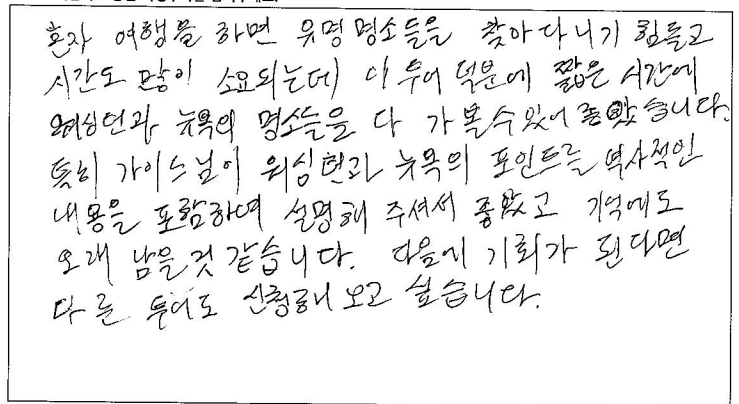 혼자 여행을 하면 유명명소들을 찾아다니기 힘들고
시간도 많이 소요되는데 이 투어 덕분에 짧은 시간에
워싱턴과 뉴욕의 명소들을 다 가볼수있어 좋았습니다.
특히 가이드님이 워싱턴과 뉴욕의 포인트를 역사적인
내용을 포함하여 설명해 주셔서 좋았고 기억에도
오래 남을것 같습니다. 다음에 기회가 된다면
다른 투어도 신청해 보고 싶습니다.